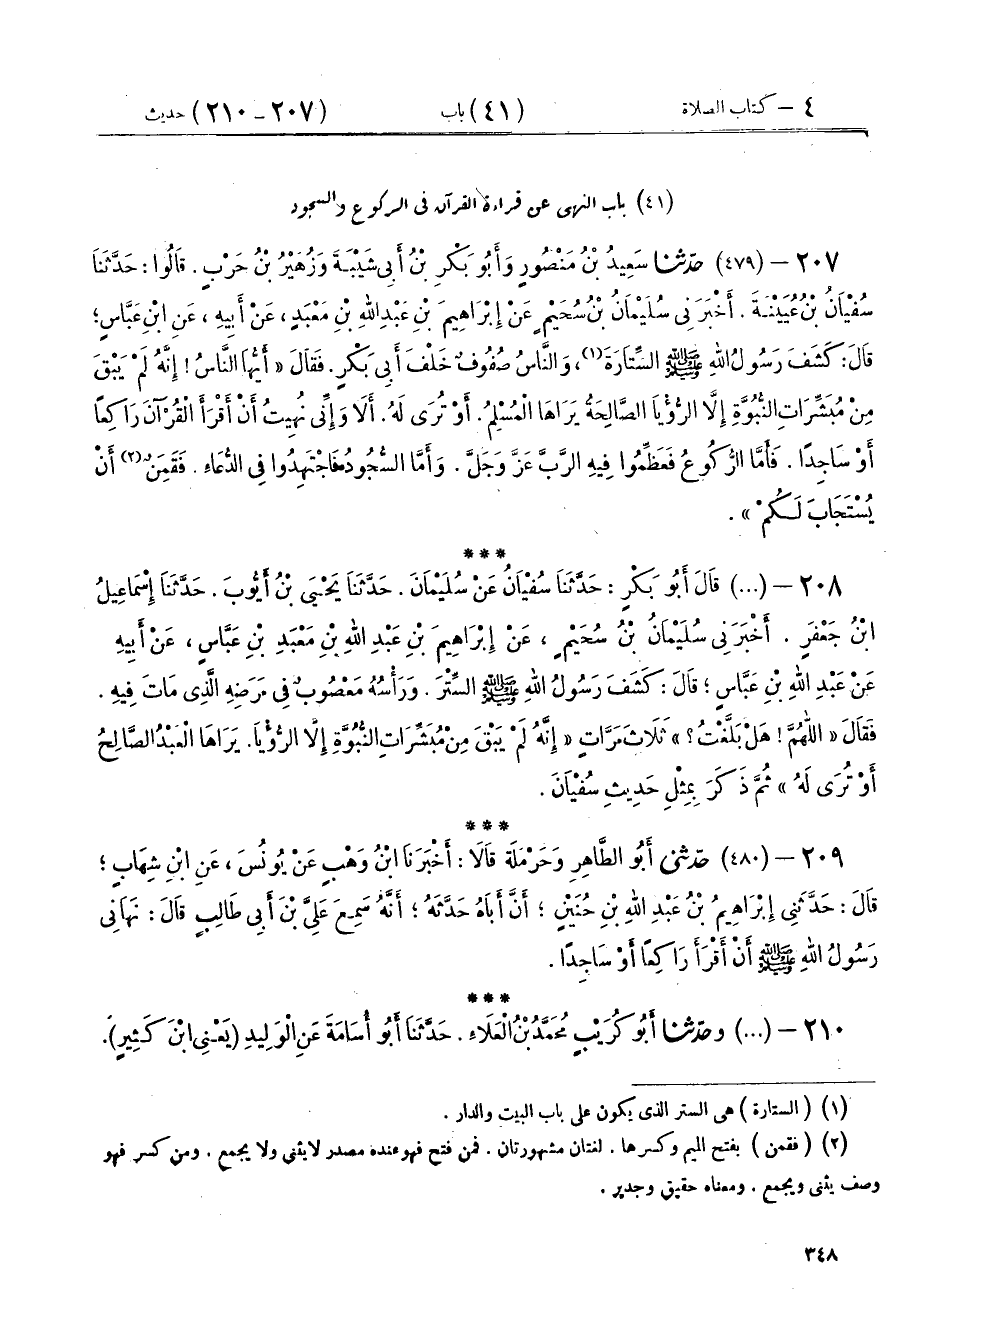 ٤ – كتاب الصلاة (٤١) باب (٢٠٧ – ٢١٠) حديث
(٤١) باب النهى عن قراءة القرآن فى الركوع والسجود
٢٠٧ – (٤٧٩) حَدَّثَنَا سَعِيدُ بْنُ مَنْصُورٍ وَأَبُو بَكْرِ بْنُ أَبِى شَيْبَةَ وَزُهَيْرُ بْنُ حَرْبٍ . قَالُوا : حَدَّثَنَا
سُفْيَانُ بْنُ عُيَيْنَةَ . أَخْبَرَنِى سُلَيْمَانُ بْنُ سُحَيْمٍ عَنْ إِبْرَاهِيمَ بْنِ عَبْدِ اللهِ بْنِ مَعْبَدٍ ، عَنْ أَبِيهِ ، عَنِ ابْنِ عَبَّاسٍ ؛
قَالَ : كَشَفَ رَسُولُ اللهِ ﷺ السِّتَارَةَ (١) ، وَالنَّاسُ صُفُوفٌ خَلْفَ أَبِى بَكْرٍ . فَقَالَ « أَيُّهَا النَّاسُ ! إِنَّهُ لَمْ يَبْقَ
مِنْ مُبَشِّرَاتِ النُّبُوَّةِ إِلَّا الرُّؤْيَا الصَّالِحَةُ يَرَاهَا الْمُسْلِمُ . أَوْ تُرَى لَهُ . أَلَا وَإِنِّى نُهِيتُ أَنْ أَقْرَأَ الْقُرْآنَ رَاكِعًا
أَوْ سَاجِدًا . فَأَمَّا الرُّكُوعُ فَعَظِّمُوا فِيهِ الرَّبَّ عَزَّ وَجَلَّ . وَأَمَّا السُّجُودُ فَاجْتَهِدُوا فِى الدُّعَاءِ . فَقَمِنٌ (٢) أَنْ
يُسْتَجَابَ لَكُمْ » .
***
٢٠٨ – (...) قَالَ أَبُو بَكْرٍ : حَدَّثَنَا سُفْيَانُ عَنْ سُلَيْمَانَ . حَدَّثَنَا يَحْيَى بْنُ أَيُّوبَ . حَدَّثَنَا إِسْمَاعِيلُ
ابْنُ جَعْفَرٍ . أَخْبَرَنِى سُلَيْمَانُ بْنُ سُحَيْمٍ ، عَنْ إِبْرَاهِيمَ بْنِ عَبْدِ اللهِ بْنِ مَعْبَدِ بْنِ عَبَّاسٍ ، عَنْ أَبِيهِ
عَنْ عَبْدِ اللهِ بْنِ عَبَّاسٍ ؛ قَالَ : كَشَفَ رَسُولُ اللهِ ﷺ السِّتْرَ . وَرَأْسُهُ مَعْصُوبٌ فِى مَرَضِهِ الَّذِى مَاتَ فِيهِ .
فَقَالَ « اللّٰهُمَّ ! هَلْ بَلَّغْتُ ؟ » ثَلَاثَ مَرَّاتٍ « إِنَّهُ لَمْ يَبْقَ مِنْ مُبَشِّرَاتِ النُّبُوَّةِ إِلَّا الرُّؤْيَا . يَرَاهَا الْعَبْدُ الصَّالِحُ
أَوْ تُرَى لَهُ » ثُمَّ ذَكَرَ بِمِثْلِ حَدِيثِ سُفْيَانَ .
***
٢٠٩ – (٤٨٠) حَدَّثَنِى أَبُو الطَّاهِرِ وَحَرْمَلَةُ قَالَا : أَخْبَرَنَا ابْنُ وَهْبٍ عَنْ يُونُسَ ، عَنِ ابْنِ شِهَابٍ ؛
قَالَ : حَدَّثَنِى إِبْرَاهِيمُ بْنُ عَبْدِ اللهِ بْنِ حُنَيْنٍ ؛ أَنَّ أَبَاهُ حَدَّثَهُ ؛ أَنَّهُ سَمِعَ عَلِىَّ بْنَ أَبِى طَالِبٍ قَالَ : نَهَانِى
رَسُولُ اللهِ ﷺ أَنْ أَقْرَأَ رَاكِعًا أَوْ سَاجِدًا .
***
٢١٠ – (...) وحَدَّثَنَا أَبُو كُرَيْبٍ مُحَمَّدُ بْنُ الْعَلَاءِ . حَدَّثَنَا أَبُو أُسَامَةَ عَنِ الْوَلِيدِ (يَعْنِى ابْنَ كَثِيرٍ) .
(١) (الستارة) هى الستر الذى يكون على باب البيت والدار .
(٢) (فقمن) بفتح الميم وكسرها . لغتان مشهورتان . فمن فتح فهو عنده مصدر لا يثنى ولا يجمع . ومن كسر فهو
وصف يثنى ويجمع . ومعناه حقيق وجدير .
٣٤٨